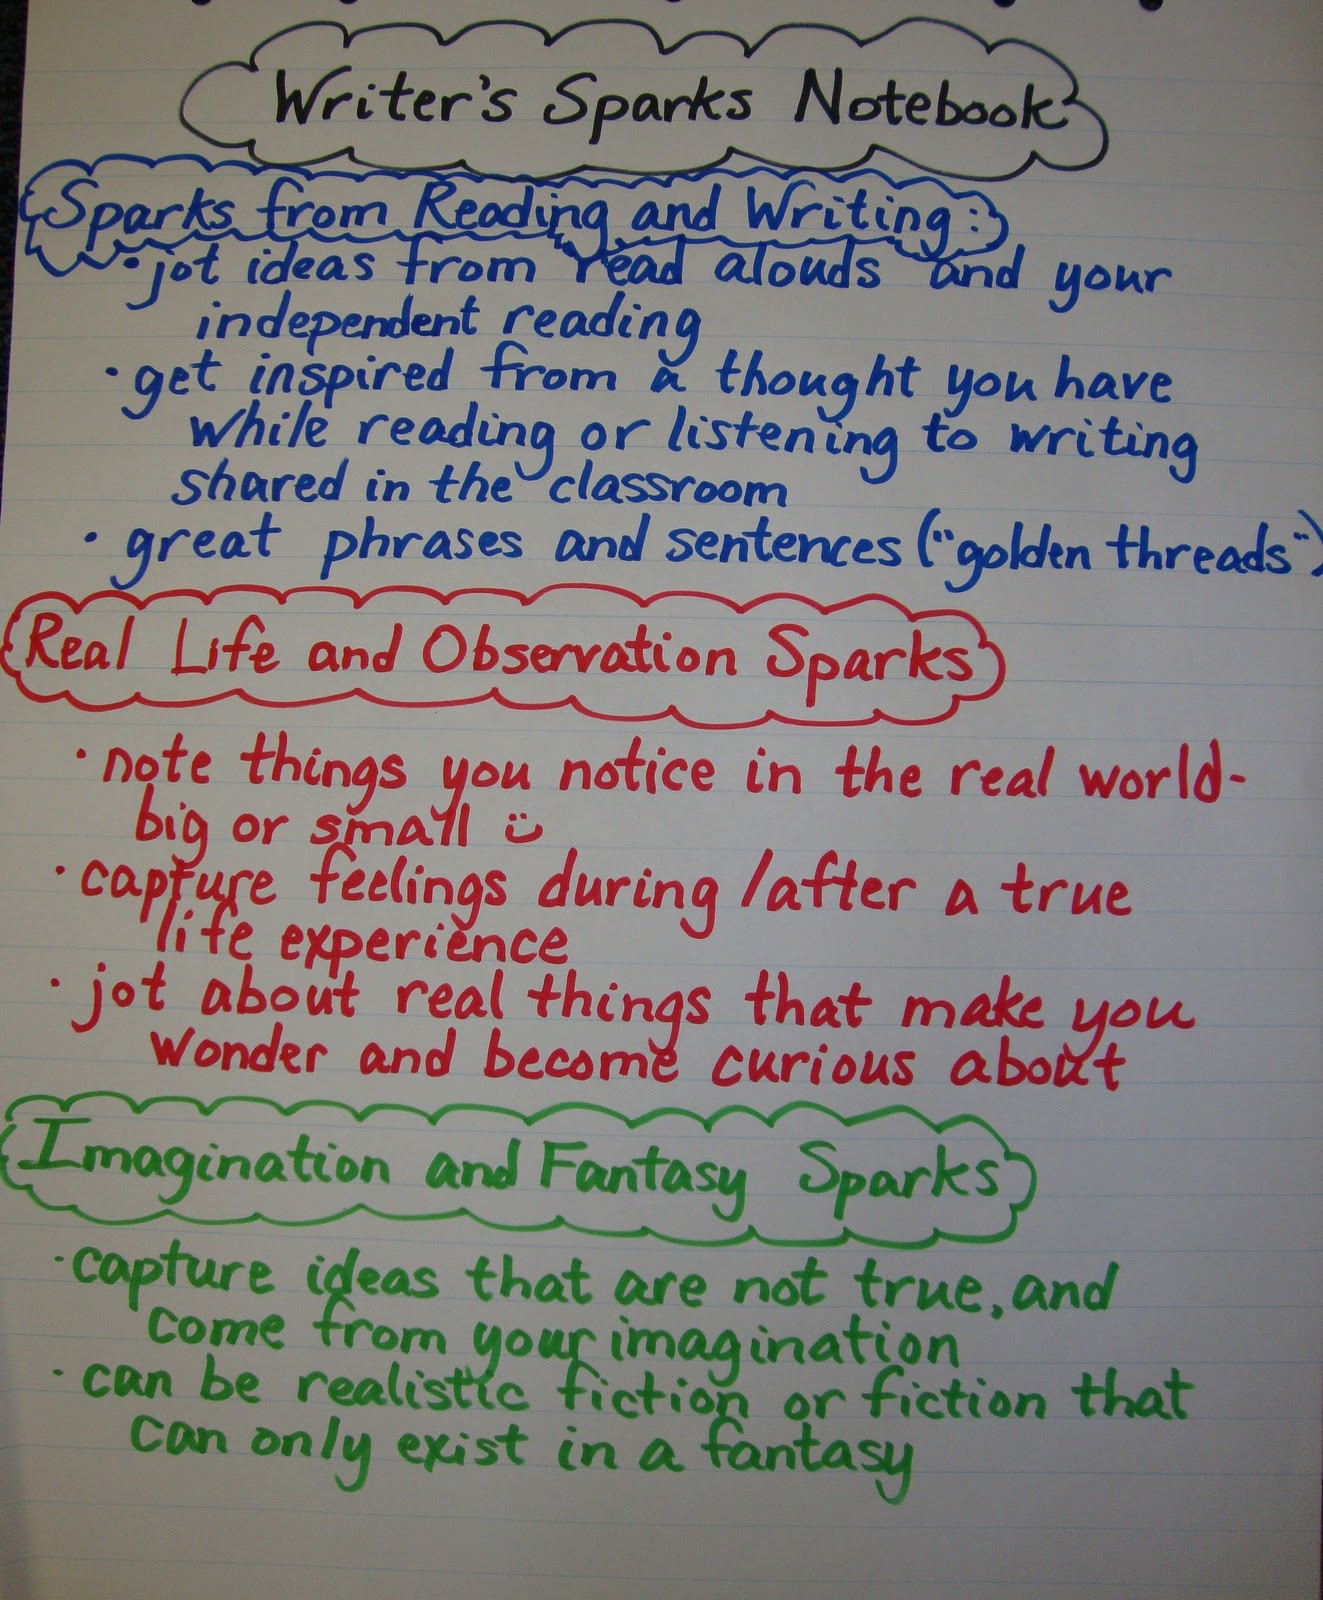 Writer's Sparks Notebook
Sparks from Reading and Writing:
• jot ideas from read alouds and your
independent reading
• get inspired from a thought you have
while reading or listening to writing
shared in the classroom
• great phrases and sentences ("golden threads")
Real Life and Observation Sparks
• note things you notice in the real world-
big or small ü
• capture feelings during/after a true
life experience
• jot about real things that make you
wonder and become curious about
Imagination and Fantasy Sparks
• capture ideas that are not true, and
come from your imagination
• can be realistic fiction or fiction that
can only exist in a fantasy